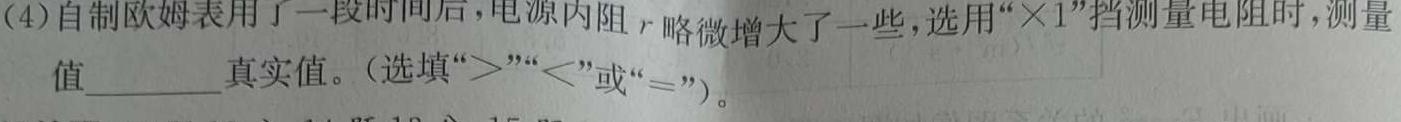 (4)自制欧姆表用了一段时间后,电源内阻r略微增大了一些,选用“×1”挡测量电阻时,测量
值________真实值。(选填“>”“<”或“=”)。